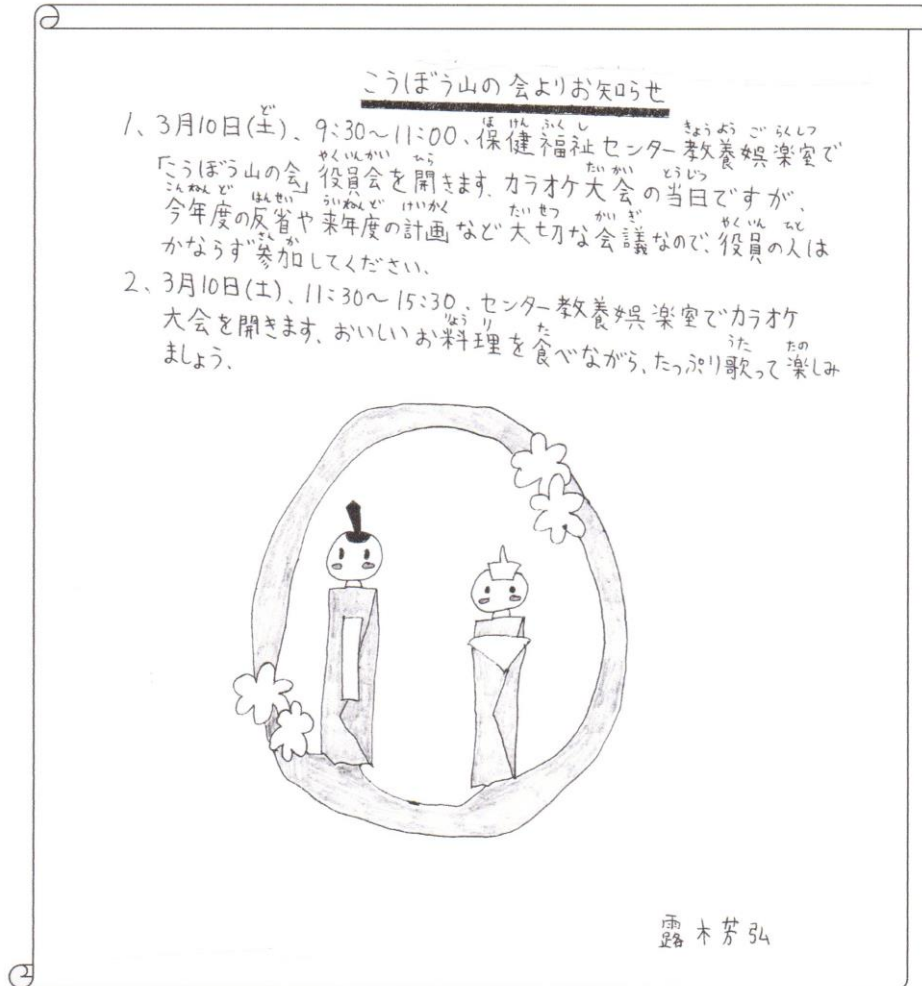 こうぼう山の会よりお知らせ
1、3月10日(土)、9:30〜11:00、保健福祉センター教養娯楽室で
「こうぼう山の会」役員会を開きます。カラオケ大会の当日ですが、
今年度の反省や来年度の計画など大切な会議なので、役員の人は
かならず参加してください。
2、3月10日(土)、11:30〜15:30、センター教養娯楽室でカラオケ
大会を開きます。おいしいお料理を食べながら、たっぷり歌って楽しみ
ましょう。
露木芳弘